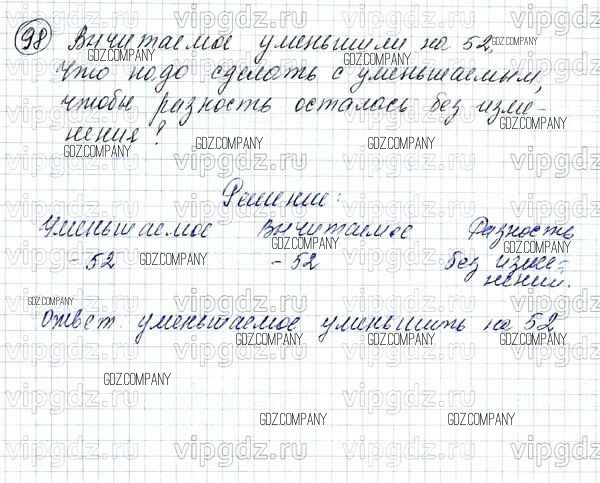 98 Вычитаемое уменьшили на 52.
Что надо сделать с уменьшаемым,
чтобы разность осталась без изме-
нения?
Решение:
Уменьшаемое Вычитаемое Разность
- 52 - 52 без изме-
нений.
Ответ: уменьшаемое уменьшить на 52
GDZ.COMPANY
vipgdz.ru